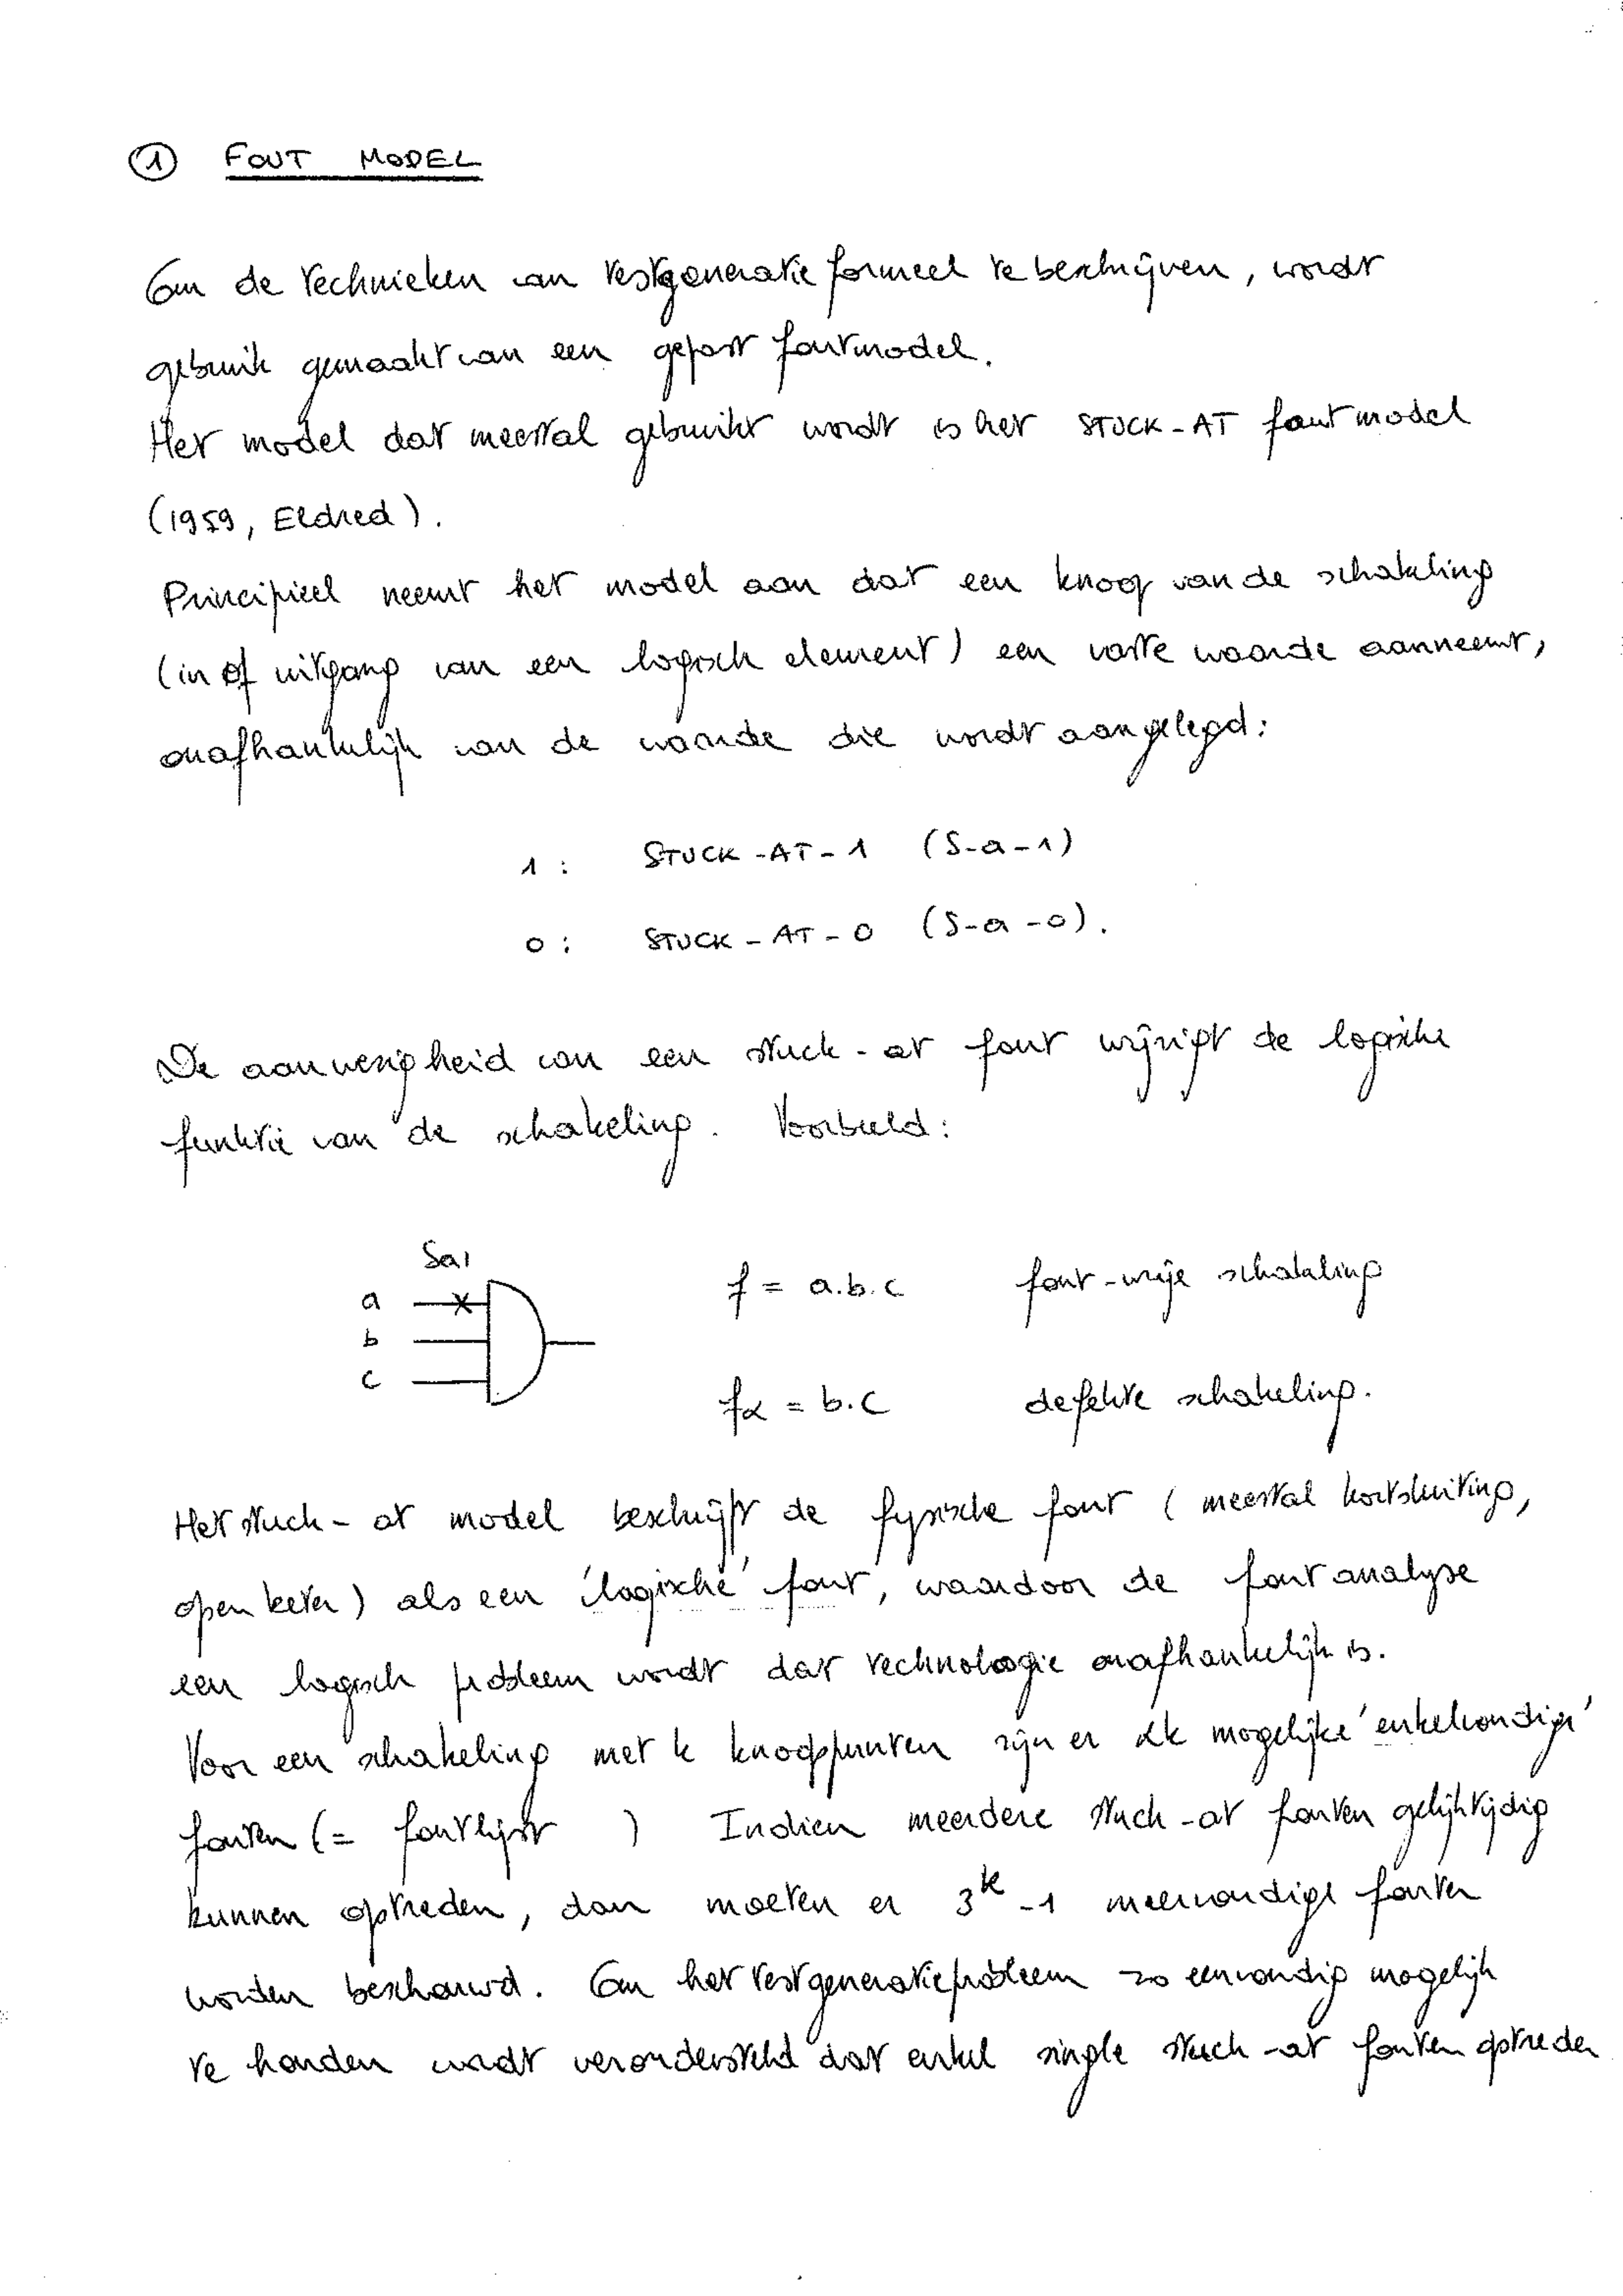 ① FOUT MODEL
Om de technieken van testgeneratie formeel te beschrijven, wordt
gebruik gemaakt van een gepast foutmodel.
Het model dat meestal gebruikt wordt is het STUCK-AT foutmodel
(1959, Eldred).
Principieel neemt het model aan dat een knoop van de schakeling
(in of uitgang van een logisch element) een vaste waarde aanneemt,
onafhankelijk van de waarde die wordt aangelegd:
1 : STUCK-AT-1 (S-a-1)
0 : STUCK-AT-0 (S-a-0).
De aanwezigheid van een stuck-at fout wijzigt de logische
funktie van de schakeling. Voorbeeld:
Sa1
a
b
c
f = a.b.c fout-vrije schakeling
fα = b.c defekte schakeling.
Het stuck-at model beschrijft de fysische fout (meestal kortsluiting,
open keten) als een 'logische' fout, waardoor de foutanalyse
een logisch probleem wordt dat technologie onafhankelijk is.
Voor een schakeling met k knooppunten zijn er 2k mogelijke 'enkelvoudige'
fouten (= foutlijst ) Indien meerdere stuck-at fouten gelijktijdig
kunnen optreden, dan moeten er 3^k -1 meervoudige fouten
worden beschouwd. Om het testgeneratieprobleem zo eenvoudig mogelijk
te houden wordt verondersteld dat enkel single stuck-at fouten optreden